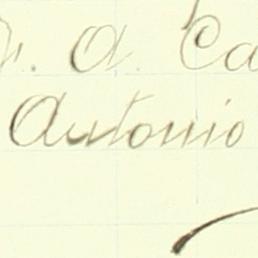 A. Ca
Antonio